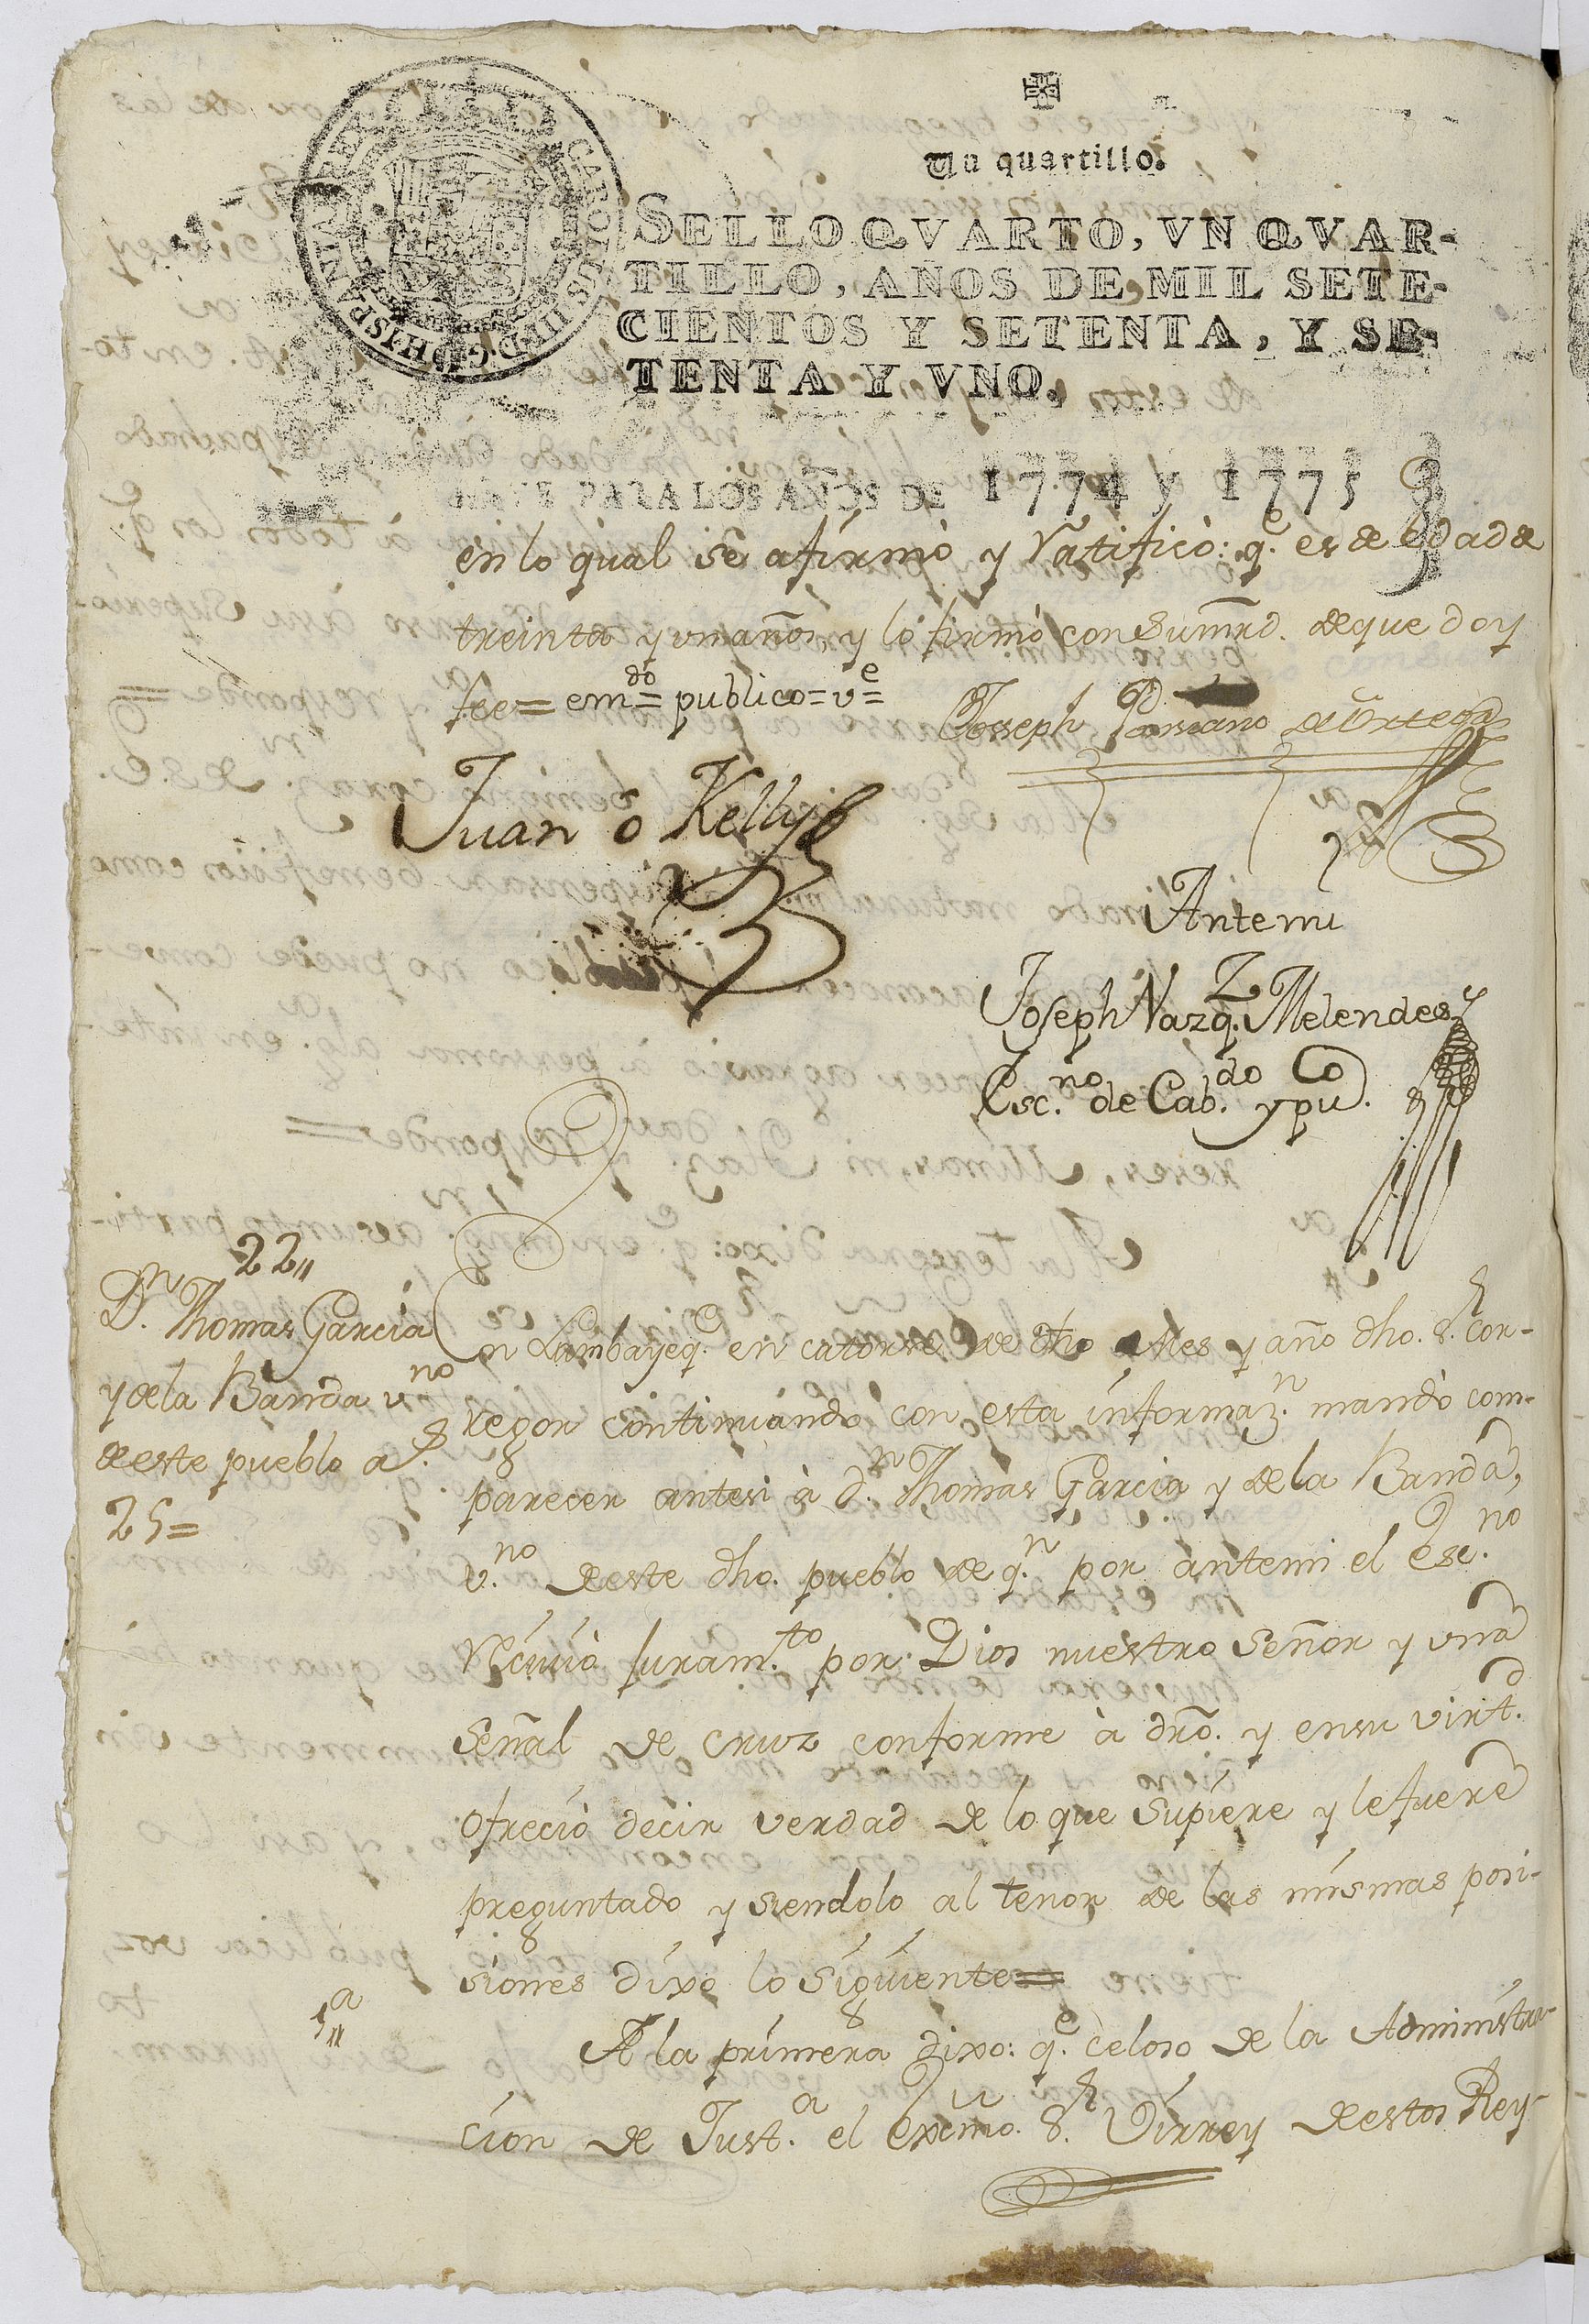 Un quartillo.
SELLO QVARTO, VN QVAR-
TILLO, AÑOS DE MIL SETE-
CIENTOS Y SETENTA, Y SE-
TENTA Y VNO.
PARA LOS AÑOS DE 1774 y 1775
en lo qual se afirmò y Ratificò: q.e es de edad de
treinta y un años y lo firmò con su mrd. de que doy
fee = em.do = publico = v.e =
Joseph de Ortega
Juan ô Kelly
Antemi
Joseph Vazq.z Melendes
Esc.no de Cab.do y pu.co
22"
D.n Thomas Garcia
y de la Banda v.no
de este pueblo a.s
25=
En Lambayeq.e en catorse de dho Mes y año dho. S.r Cor-
regor continuando con esta informaz.n mandò com-
parecer antesi à d.n Thomas Garcia y de la Banda,
v.no de este dho. pueblo de q.n por antemi el Esc.no
Reciviò Juram.to por Dios nuestro Señor y una
Señal de cruz conforme à dro. y en su virt.d
ofreciò decir verdad de lo que supiere y le fuere
preguntado y siendolo al tenor de las mismas posi-
siones dixo lo siguiente =
1.a
A la primera dixo: q.e celoso de la Administra-
cion de Just.a el Exc̃mo. S.r Virrey de estos Rey-